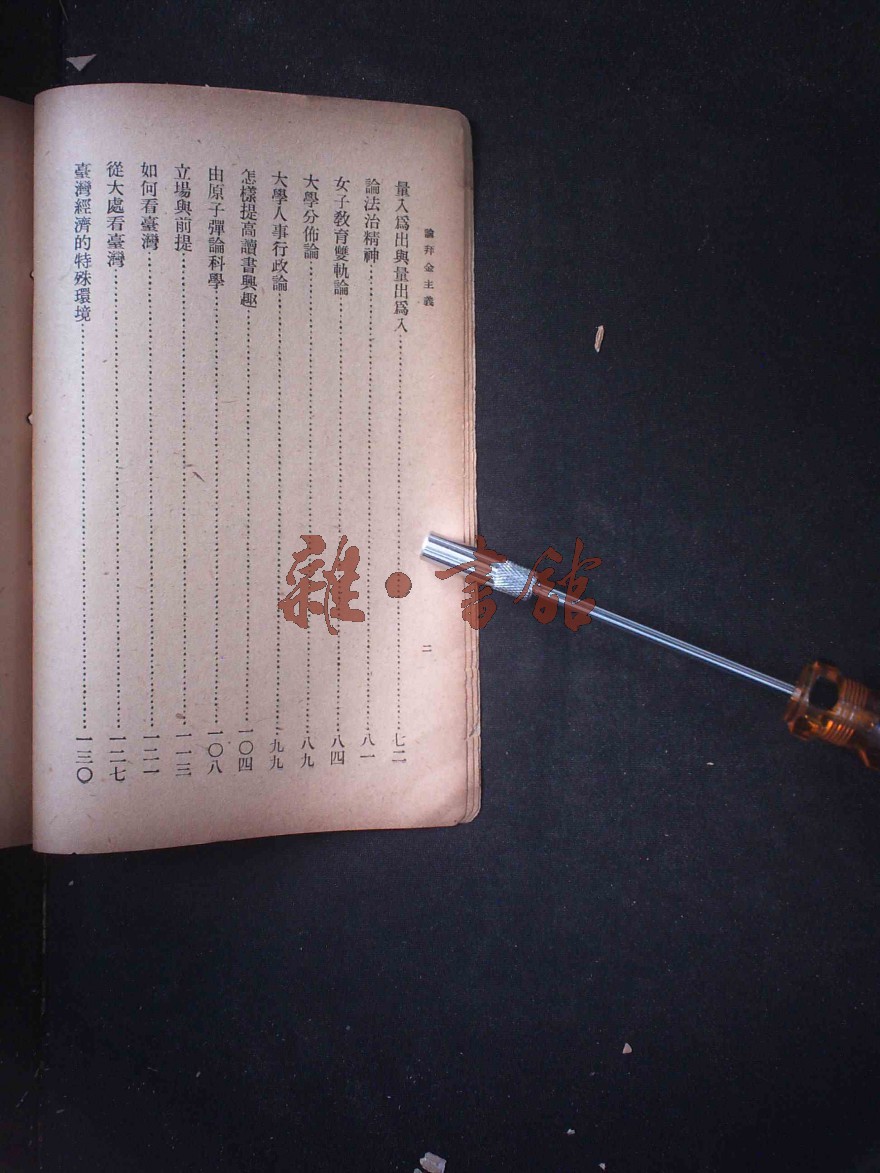 論拜金主義
二
量入爲出與量出爲入……七二
論法治精神……八一
女子敎育雙軌論……八四
大學分佈論……八九
大學人事行政論……九九
怎樣提高讀書興趣……一〇四
由原子彈論科學……一〇八
立場與前提……一一三
如何看臺灣……一二一
從大處看臺灣……一二七
臺灣經濟的特殊環境……一三〇
雜·書館